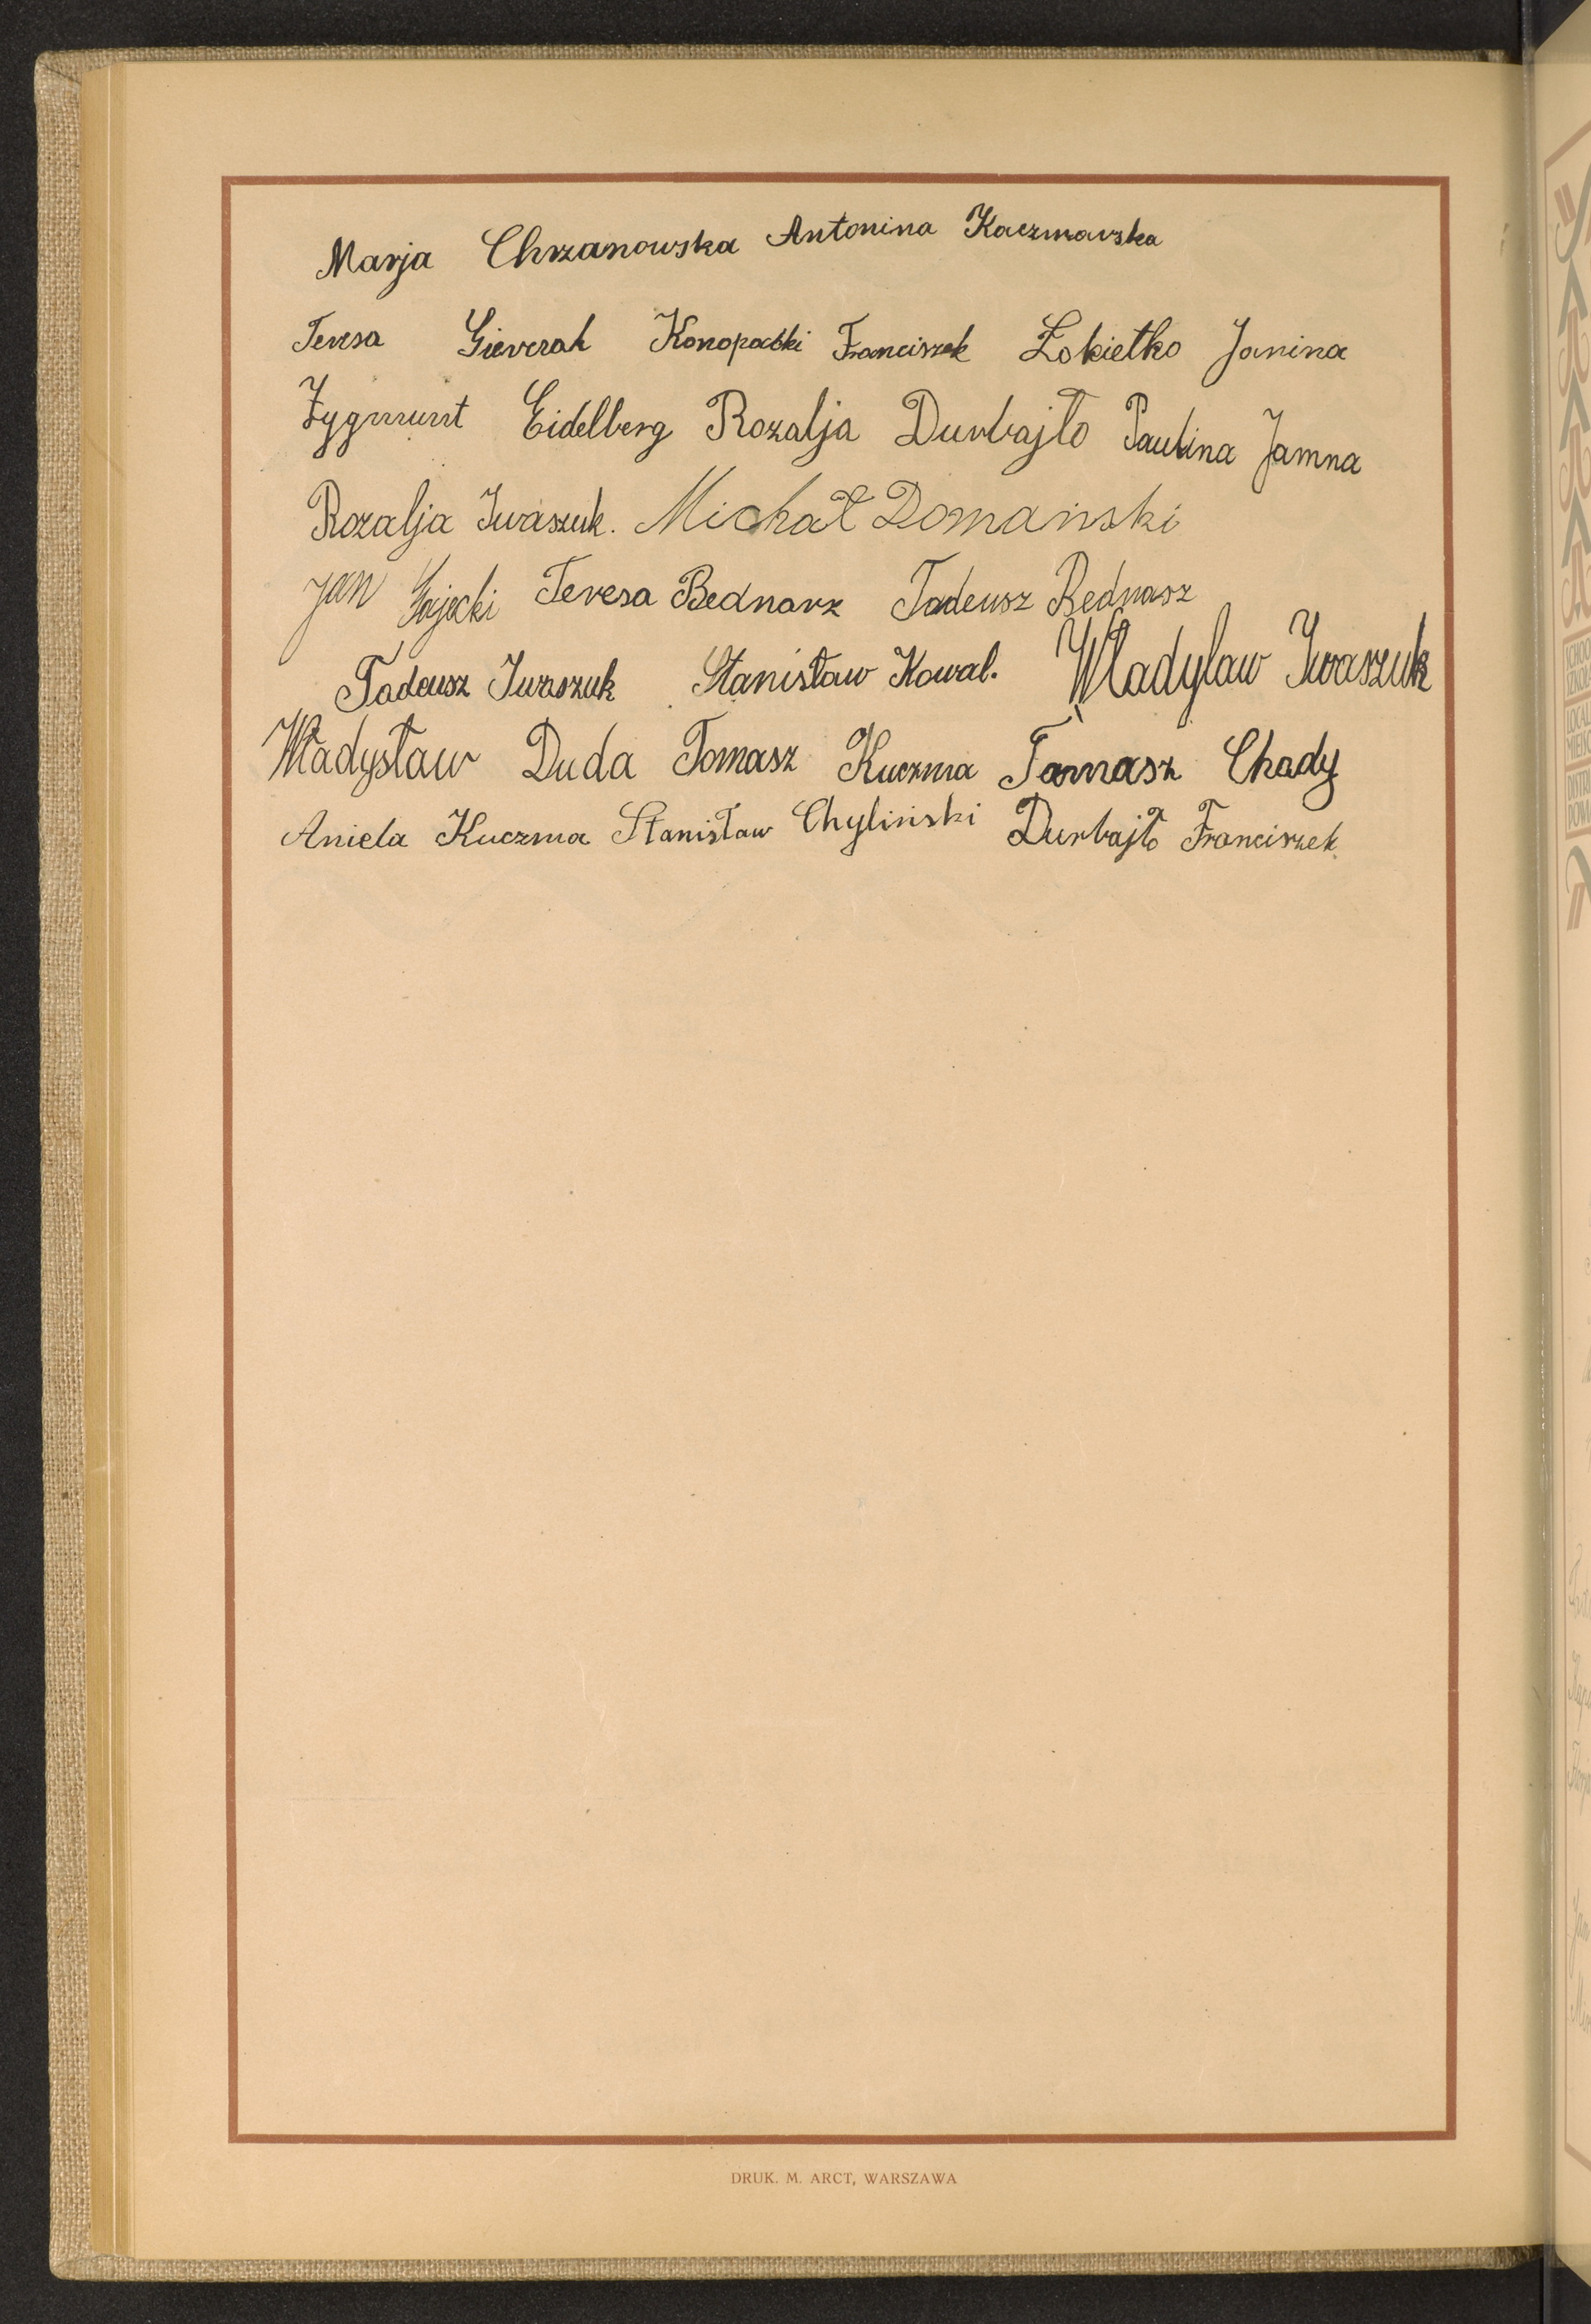 Marja Chrzanowska Antonina Kaczmarska
Teresa Konopacki Franciszek Łokietko Janina
Zygmunt Eidelberg Rozalja Durbajło Paulina Jamna
Rozalja Iwaszuk. Michał Domański
Jan Gajecki Teresa Bednarz Tadeusz Bednasz
Tadeusz Iwaszuk Stanisław Kowal. Władylaw Iwaszuk
Władysław Duda Tomasz Kuczma Tomasz Chady
Aniela Kuczma Stanisław Chyliński Durbajło Franciszek
DRUK. M. ARCT, WARSZAWA